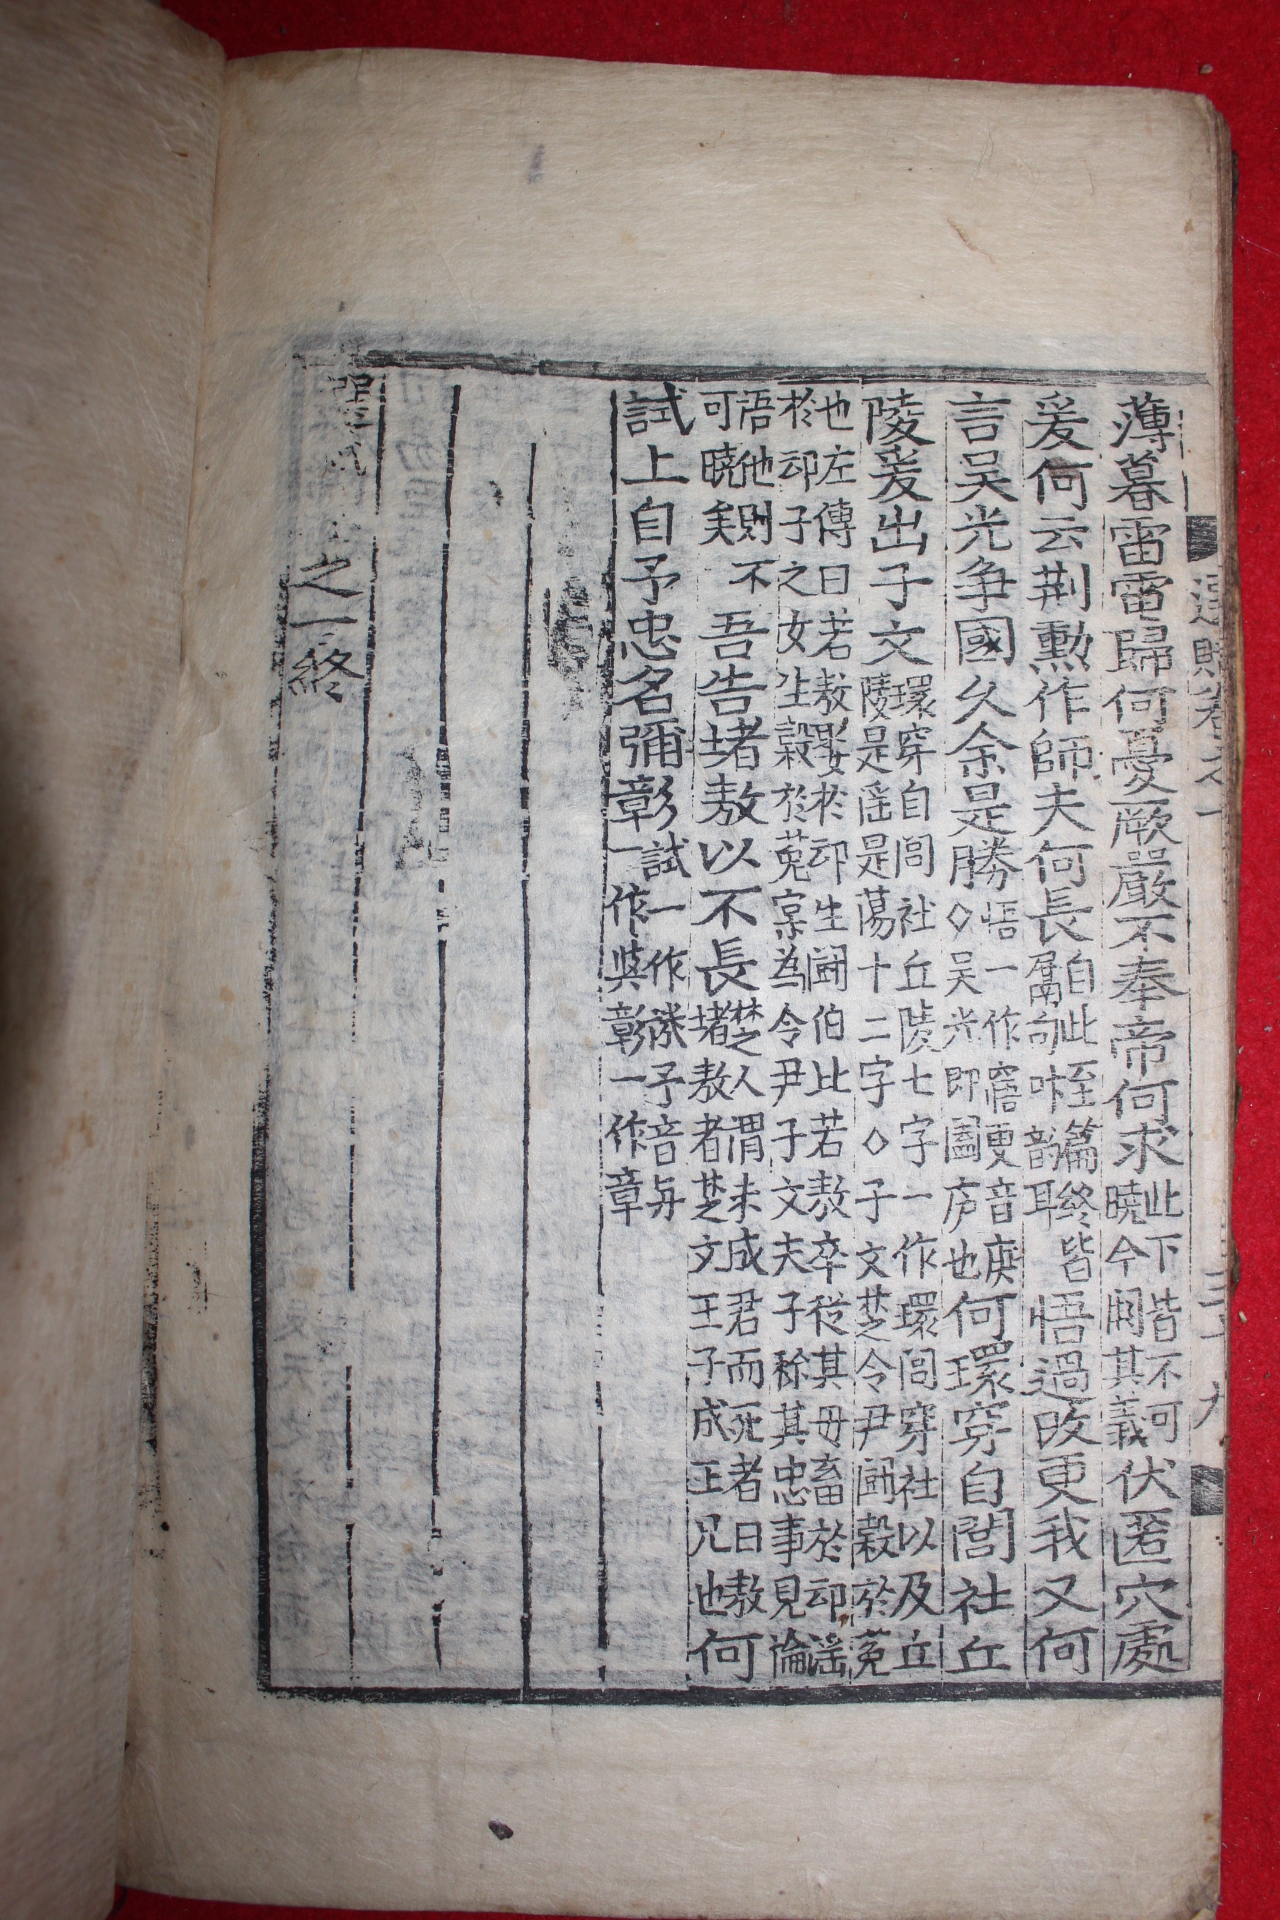 選賦卷之一 三十九
薄暮雷電歸何憂厥嚴不奉帝何求此下皆不可曉今闕其義伏匿穴處
爰何云荆勲作師夫何長自此至篇終皆屬句叶韵耳悟過改更我又何
言吴光争國久余是勝悟一作寤更音庚◇吴光即闔庐也何環穿自閭社丘
陵爰出子文環穿自閭社丘陵七字一作環閭穿社以及丘陵是淫是蕩十二字◇子文楚令尹鬭榖於菟
也左傳曰若敖娶於䢵生鬭伯比若敖卒從其母畜於䢵淫於䢵子之女生榖於菟實為令尹子文夫子稱其忠事見論
語他則不可曉矣吾告堵敖以不長楚人謂未成君而死者曰敖堵敖者楚文王子成王兄也何
試上自予忠名彌彰試一作予音与一作與彰一作章
之一終